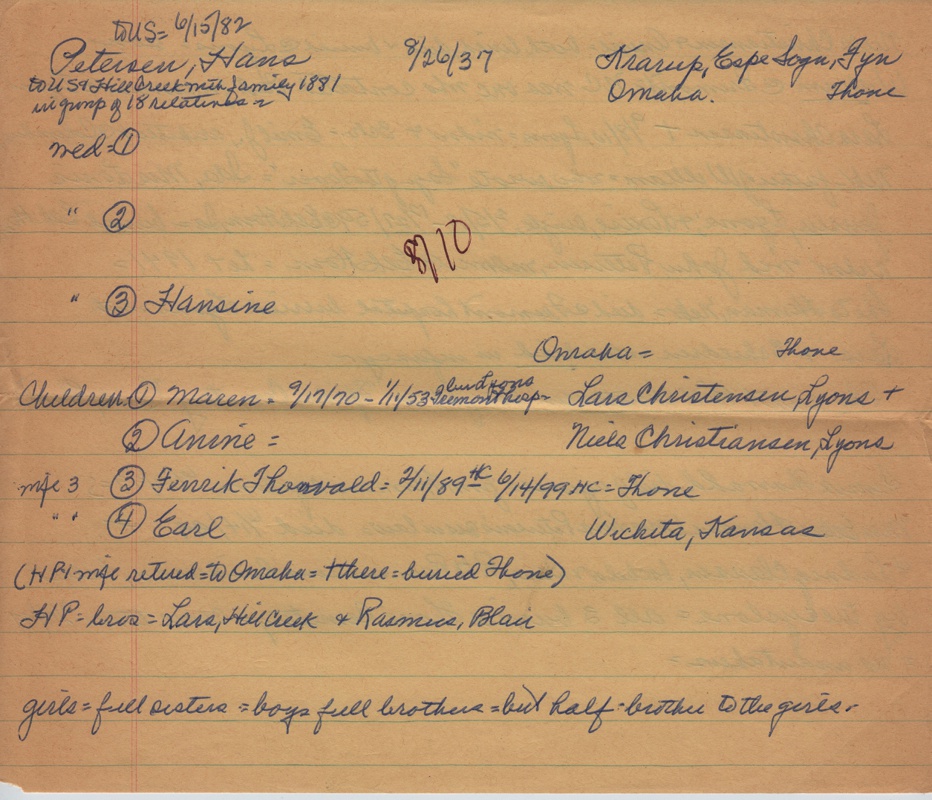 to US = 6/15/82
Petersen, Hans 8/26/37 Krarup, Espe Sogn, Fyn
to USA Hill Creek with family 1881 Omaha. Thone
in group of 18 relatives =
wed = ①
" ②
8/10
" ③ Hansine
Omaha = Thone
Children: ① Maren = 9/17/70 - 1/11/53 Fremont hosp = Lars Christensen, Lyons +
buried Lyons
② Anine = Niels Christiansen, Lyons
wife 3 ③ Fenrik Thorwald = 2/11/89 HC 6/14/99 HC = Thone
" " ④ Earl Wichita, Kansas
(HP + wife retired = to Omaha = + there = buried Thone)
HP = bros = Lars, Hill Creek & Rasmus, Blair
girls = full sisters = boys full brothers = but half-brother to the girls -